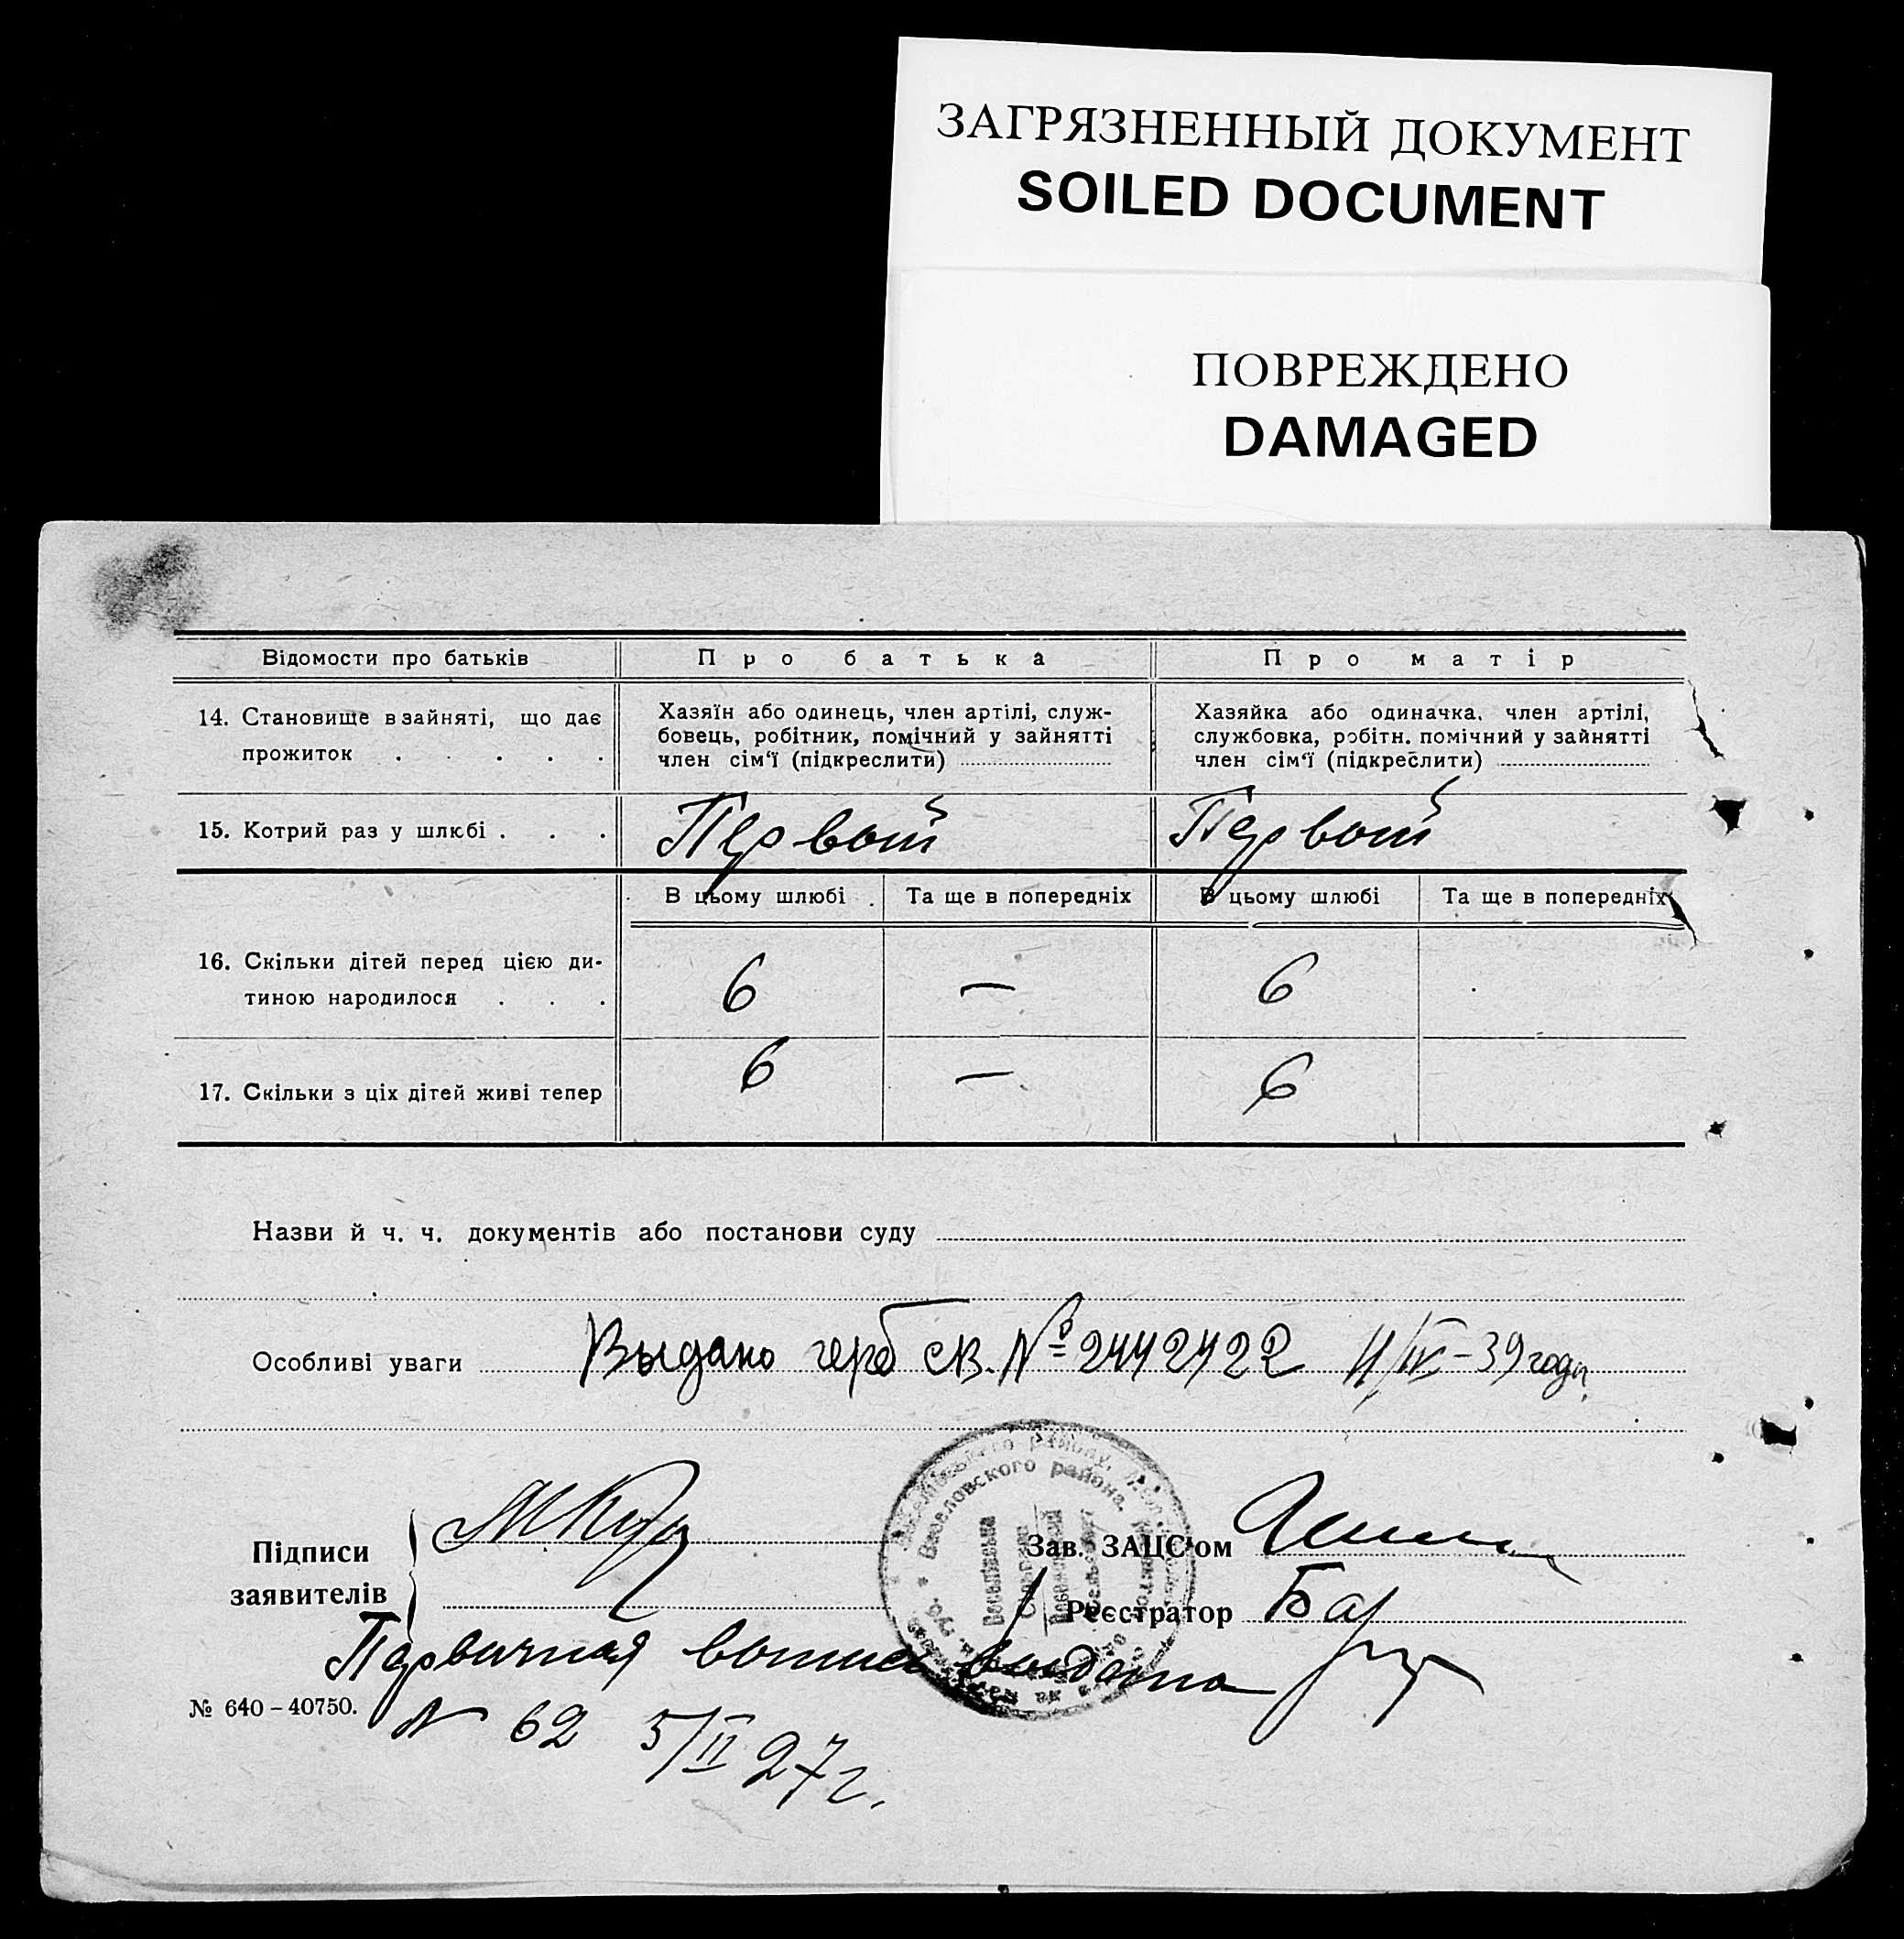 ЗАГРЯЗНЕННЫЙ ДОКУМЕНТ
SOILED DOCUMENT
ПОВРЕЖДЕНО
DAMAGED
Відомости про батьків
Про батька
Про матір
14. Становище в зайняті, що дає
прожиток . . . . .
Хазяїн або одинець, член артілі, служ-
бовець, робітник, помічний у зайнятті
член сім'ї (підкреслити)
Хазяйка або одиначка, член артілі,
службовка, робітн. помічний у зайнятті
член сім'ї (підкреслити)
15. Котрий раз у шлюбі . . .
Первый
Первый
В цьому шлюбі
Та ще в попередніх
В цьому шлюбі
Та ще в попередніх
16. Скільки дітей перед цією ди-
тиною народилося . . .
6
—
6
17. Скільки з ціх дітей живі тепер
6
—
6
Назви й ч. ч. документів або постанови суду
Особливі уваги
Выдано герб св. № 2442422 11/IV-39 года
Підписи
заявителів
Зав. ЗАЦС'ом
Реєстратор
Васеловского района
Первичная выпись выдана
№ 640-40750.
N 62 5/II 27 г.